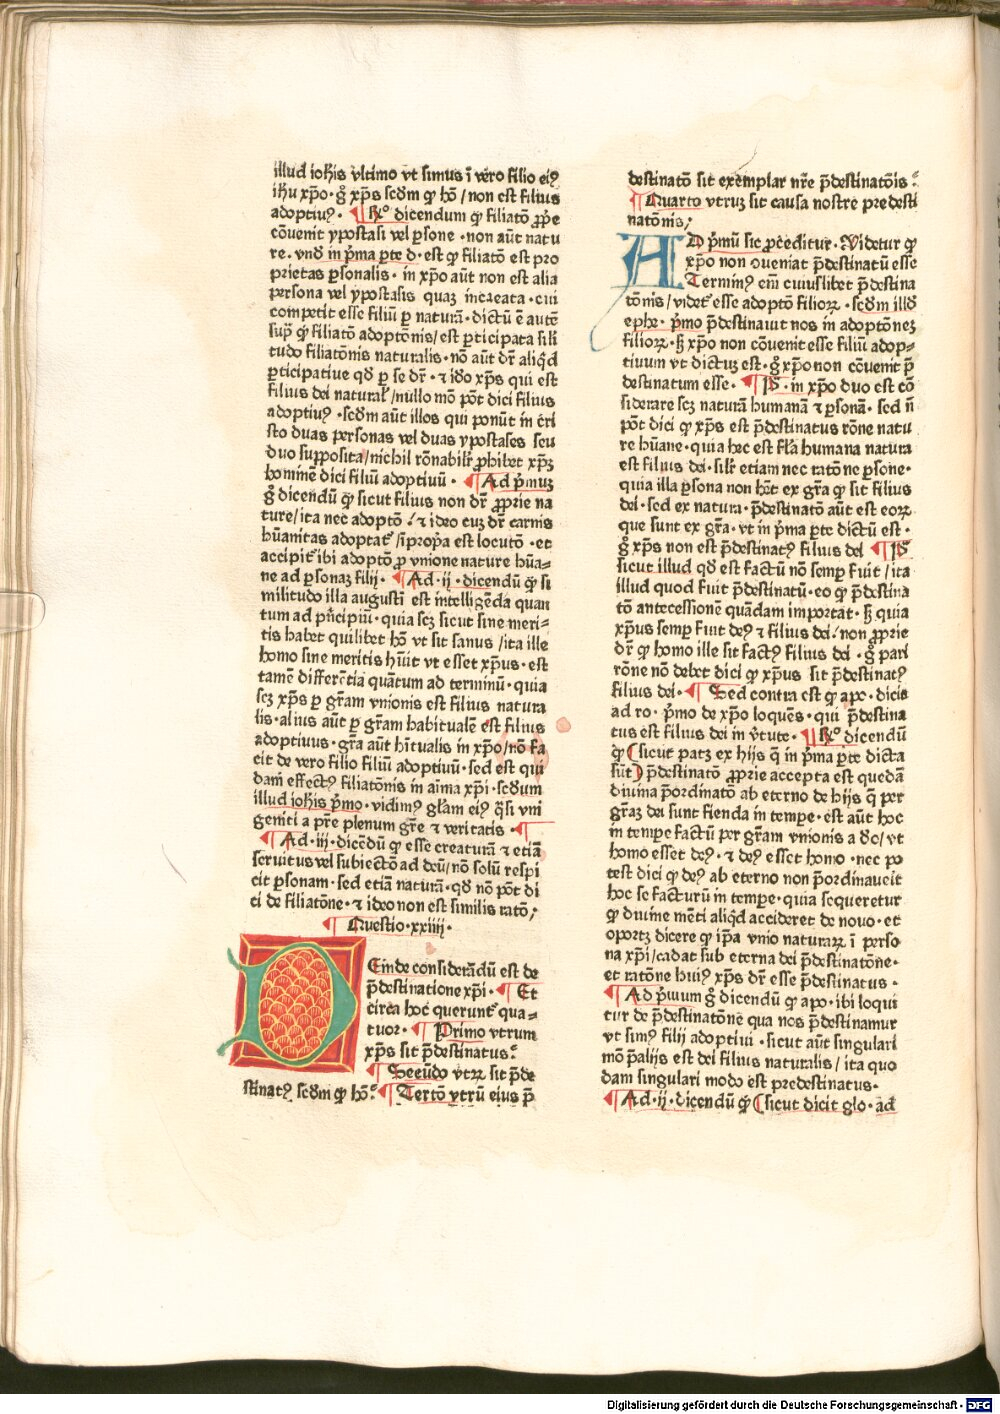 illud ioh̄is vltimo vt simus ī vero filio eiꝰ
ih̄u xp̄o · gͦ xp̄s scd̄m ꝙ hō / non est filius
adoptiuꝰ · ¶ R̄º dicendum ꝙ filiatō ꝓpͥe
cōuenit ypostasi vel ꝑsone · non aūt natu
re · vn̄ in pͥma ꝑte dͦ · est ꝙ filiatō est pro
prietas ꝑsonalis · in xp̄o aūt non est alia
persona vel ypostasis quaꝫ increata · cui
competit esse filiū ꝑ naturā · dictū ē autē
sup̄ ꝙ filiatō adoptōnis / est ꝑticipata sili
tudo filiatōnis naturalis · nō aūt dr̄ aliqͥd
ꝑticipatiue qd̄ ꝑ se dr̄ · ⁊ iō xp̄s qui est
filius dei naturaľ / nullo mō pōt dici filius
adoptiuꝰ · scd̄m aūt illos qui ponūt in cri
sto duas personas vel duas ypostases seu
duo supposita / nichil rōnabilr̄ ꝓhibet xp̄ꝫ
hominē dici filiū adoptiuū · ¶ Ad pͥmuꝫ
gͦ dicendū ꝙ sicut filius non dr̄ ꝓprie na
ture / ita nec adoptō · ⁊ ideo cuꝫ dr̄ carnis
hūanitas adoptat̄ / īprop̄a est locutō · et
accipit̄ ibi adoptō ꝓ vnione nature hūa=
ne ad ꝑsonaꝫ filij · ¶ Ad · ij · dicendū ꝙ si
militudo illa augusti est intelligēda quan
tum ad pͥncipiū · quia scꝫ sicut sine meri=
tis habet quilibet hō vt sit sanus / ita ille
homo sine meritis hūit vt esset xp̄us · est
tamē differētia quātum ad terminū · quia
scꝫ xp̄s ꝑ gr̄am vnionis est filius natura
lis · alius aūt ꝑ gr̄am habitualē est filius
adoptiuus · gr̄a aūt hītualis in xp̄o / nō fa
cit de vero filio filiū adoptiuū · sed est qui
dam effectꝰ filiatōnis in aīma xp̄i · scd̄um
illud ioh̄is pͥmo · vidimꝰ gl̄am eiꝰ qͣsi vni
geniti a pr̄e plenum gr̄e ⁊ veritatis · ¶
¶ Ad · iij · dicēdū ꝙ esse creaturā ⁊ etiā
seruitus vel subiectō ad deū / nō solū respi
cit ꝑsonam · sed etiā naturā · qd̄ nō pōt di
ci de filiatōne · ⁊ ideo non est similis ratō /
¶ Questio · xxiiij ·
DEinde considerādū est de
p̄destinatione xp̄i · ¶ Et
circa hoc querunt̄ qua=
tuor · ¶ Primo vtrum
xp̄s sit p̄destinatus ·
¶ Secūdo vtꝝ sit p̄de
stinatꝰ scd̄m ꝙ hō · ¶ Tertō vtrū eius p̄
destinatō sit exemplar nr̄e p̄destinatōis ·
¶ Quarto vtruꝫ sit causa nostre predesti
natōnis /
AD pͥmū sic ꝓceditur · Videtur ꝙ
xp̄o non ɔueniat p̄destinatū esse
Terminꝰ em̄ cuiuslibet p̄destina
tōnis / videt̄ esse adoptō filioꝝ · scd̄m illō
ephe · pͥmo p̄destinauit nos in adoptōneꝫ
filioꝝ · sꝫ xp̄o non cōuenit esse filiū adop=
tiuum vt dictuꝫ est · gͦ xp̄o non cōuenit p̄
destinatum esse · ¶ P̄ · in xp̄o duo est cō
siderare scꝫ naturā humanā ⁊ ꝑsonā · sed n̄
pōt dici ꝙ xp̄s est p̄destinatus rōne natu
re hūane · quia hec est fl̄a humana natura
est filius dei · silr̄ etiam nec ratōne ꝑsone ·
quia illa ꝑsona non h̄et ex gr̄a ꝙ sit filius
dei · sed ex natura · p̄destinatō aūt est eoꝝ
que sunt ex gr̄a · vt in pͥma ꝑte dictū est ·
gͦ xp̄s non est p̄destinatꝰ filius dei ¶ P̄
sicut illud qd̄ est factū nō semꝑ fuit / ita
illud quod fuit p̄destinatū · eo ꝙ p̄destina
tō antecessionē quādam importat · sꝫ quia
xp̄us semꝑ fuit deꝰ ⁊ filius dei · non ꝓprie
dr̄ ꝙ homo ille sit factꝰ filius dei · gͦ pari
rōne nō debet dici ꝙ xp̄us sit p̄destinatꝰ
filius dei · ¶ Sed contra est ꝙ apͦ · dicit
ad ro · pͥmo de xp̄o loquēs · qui p̄destina
tus est filius dei in v̓tute · ¶ R̄º dicendū
ꝙ ( sicut patꝫ ex hijs q̄ in pͥma ꝑte dicta
sūt ) p̄destinatō ꝓprie accepta est quedā
diuina p̄ordinatō ab eterno de hijs q̄ per
gr̄aꝫ dei sunt fienda in tempe · est aūt hoc
in tempe factū per gr̄am vnionis a dō / vt
homo esset deꝰ · ⁊ deꝰ esset homo · nec po
test dici ꝙ deꝰ ab eterno non p̄ordinauerit
hoc se facturū in tempe · quia sequeretur
ꝙ diuine mēti aliqͥd accideret de nouo · et
oportꝫ dicere ꝙ ip̄a vnio naturaꝝ ī perso
na xp̄i / cadat sub eterna dei p̄destinatōne ·
et ratōne huiꝰ xp̄s dr̄ esse p̄destinatus ·
¶ Ad pͥmum gͦ dicendū ꝙ apͦ · ibi loqui
tur de p̄destinatōne qua nos p̄destinamur
vt simꝰ filij adoptiui · sicut aūt singulari
mō p̄alijs est dei filius naturalis / ita quo
dam singulari modo est predestinatus ·
¶ Ad · ij · dicendū ꝙ ( sicut dicit glo · ad
Digitalisierung gefördert durch die Deutsche Forschungsgemeinschaft - DFG